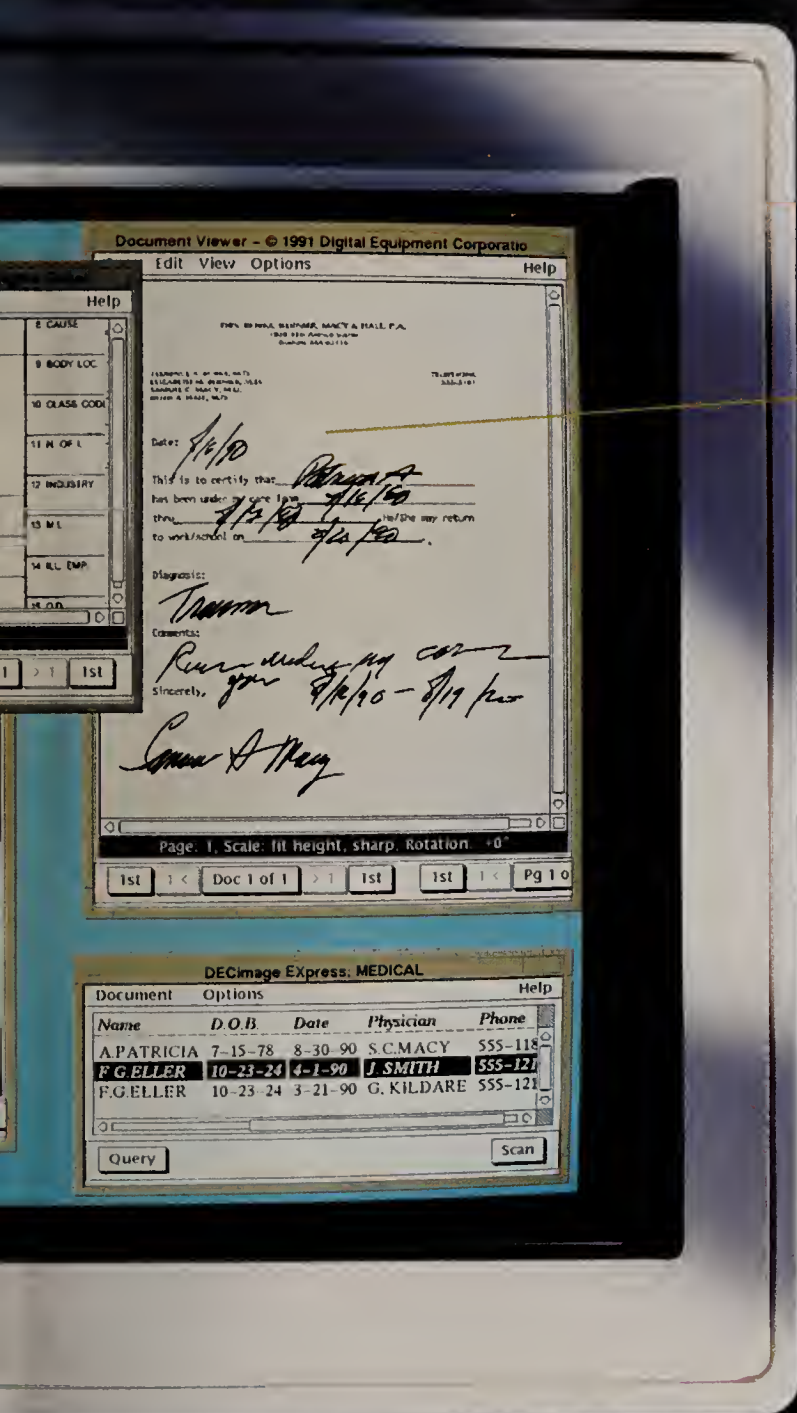 Document Viewer - © 1991 Digital Equipment Corporatio
Edit View Options Help
Help
8 CAUSE
9 BODY LOC.
10 CLASS CODE
11 N. OF I.
12 INDUSTRY
13 M.I.
14 ILL. EMP.
15 O.D.
1 > 1 1st
MACY & HALL, P.A.
Date:
This is to certify that Patricia A
has been under my care from
thru He/She may return
to work/school on
Diagnosis:
Trauma
Comments:
under my care
Sincerely,
Macy
Page: 1, Scale: fit height, sharp, Rotation: +0°
1st 1 < Doc 1 of 1 > 1 1st 1st 1 < Pg 1 o
DECimage EXpress: MEDICAL
Document Options Help
Name D.O.B. Date Physician Phone
A.PATRICIA 7-15-78 8-30-90 S.C.MACY 555-118
F.G.ELLER 10-23-24 4-1-90 J.SMITH 555-121
F.G.ELLER 10-23-24 3-21-90 G.KILDARE 555-121
Query Scan